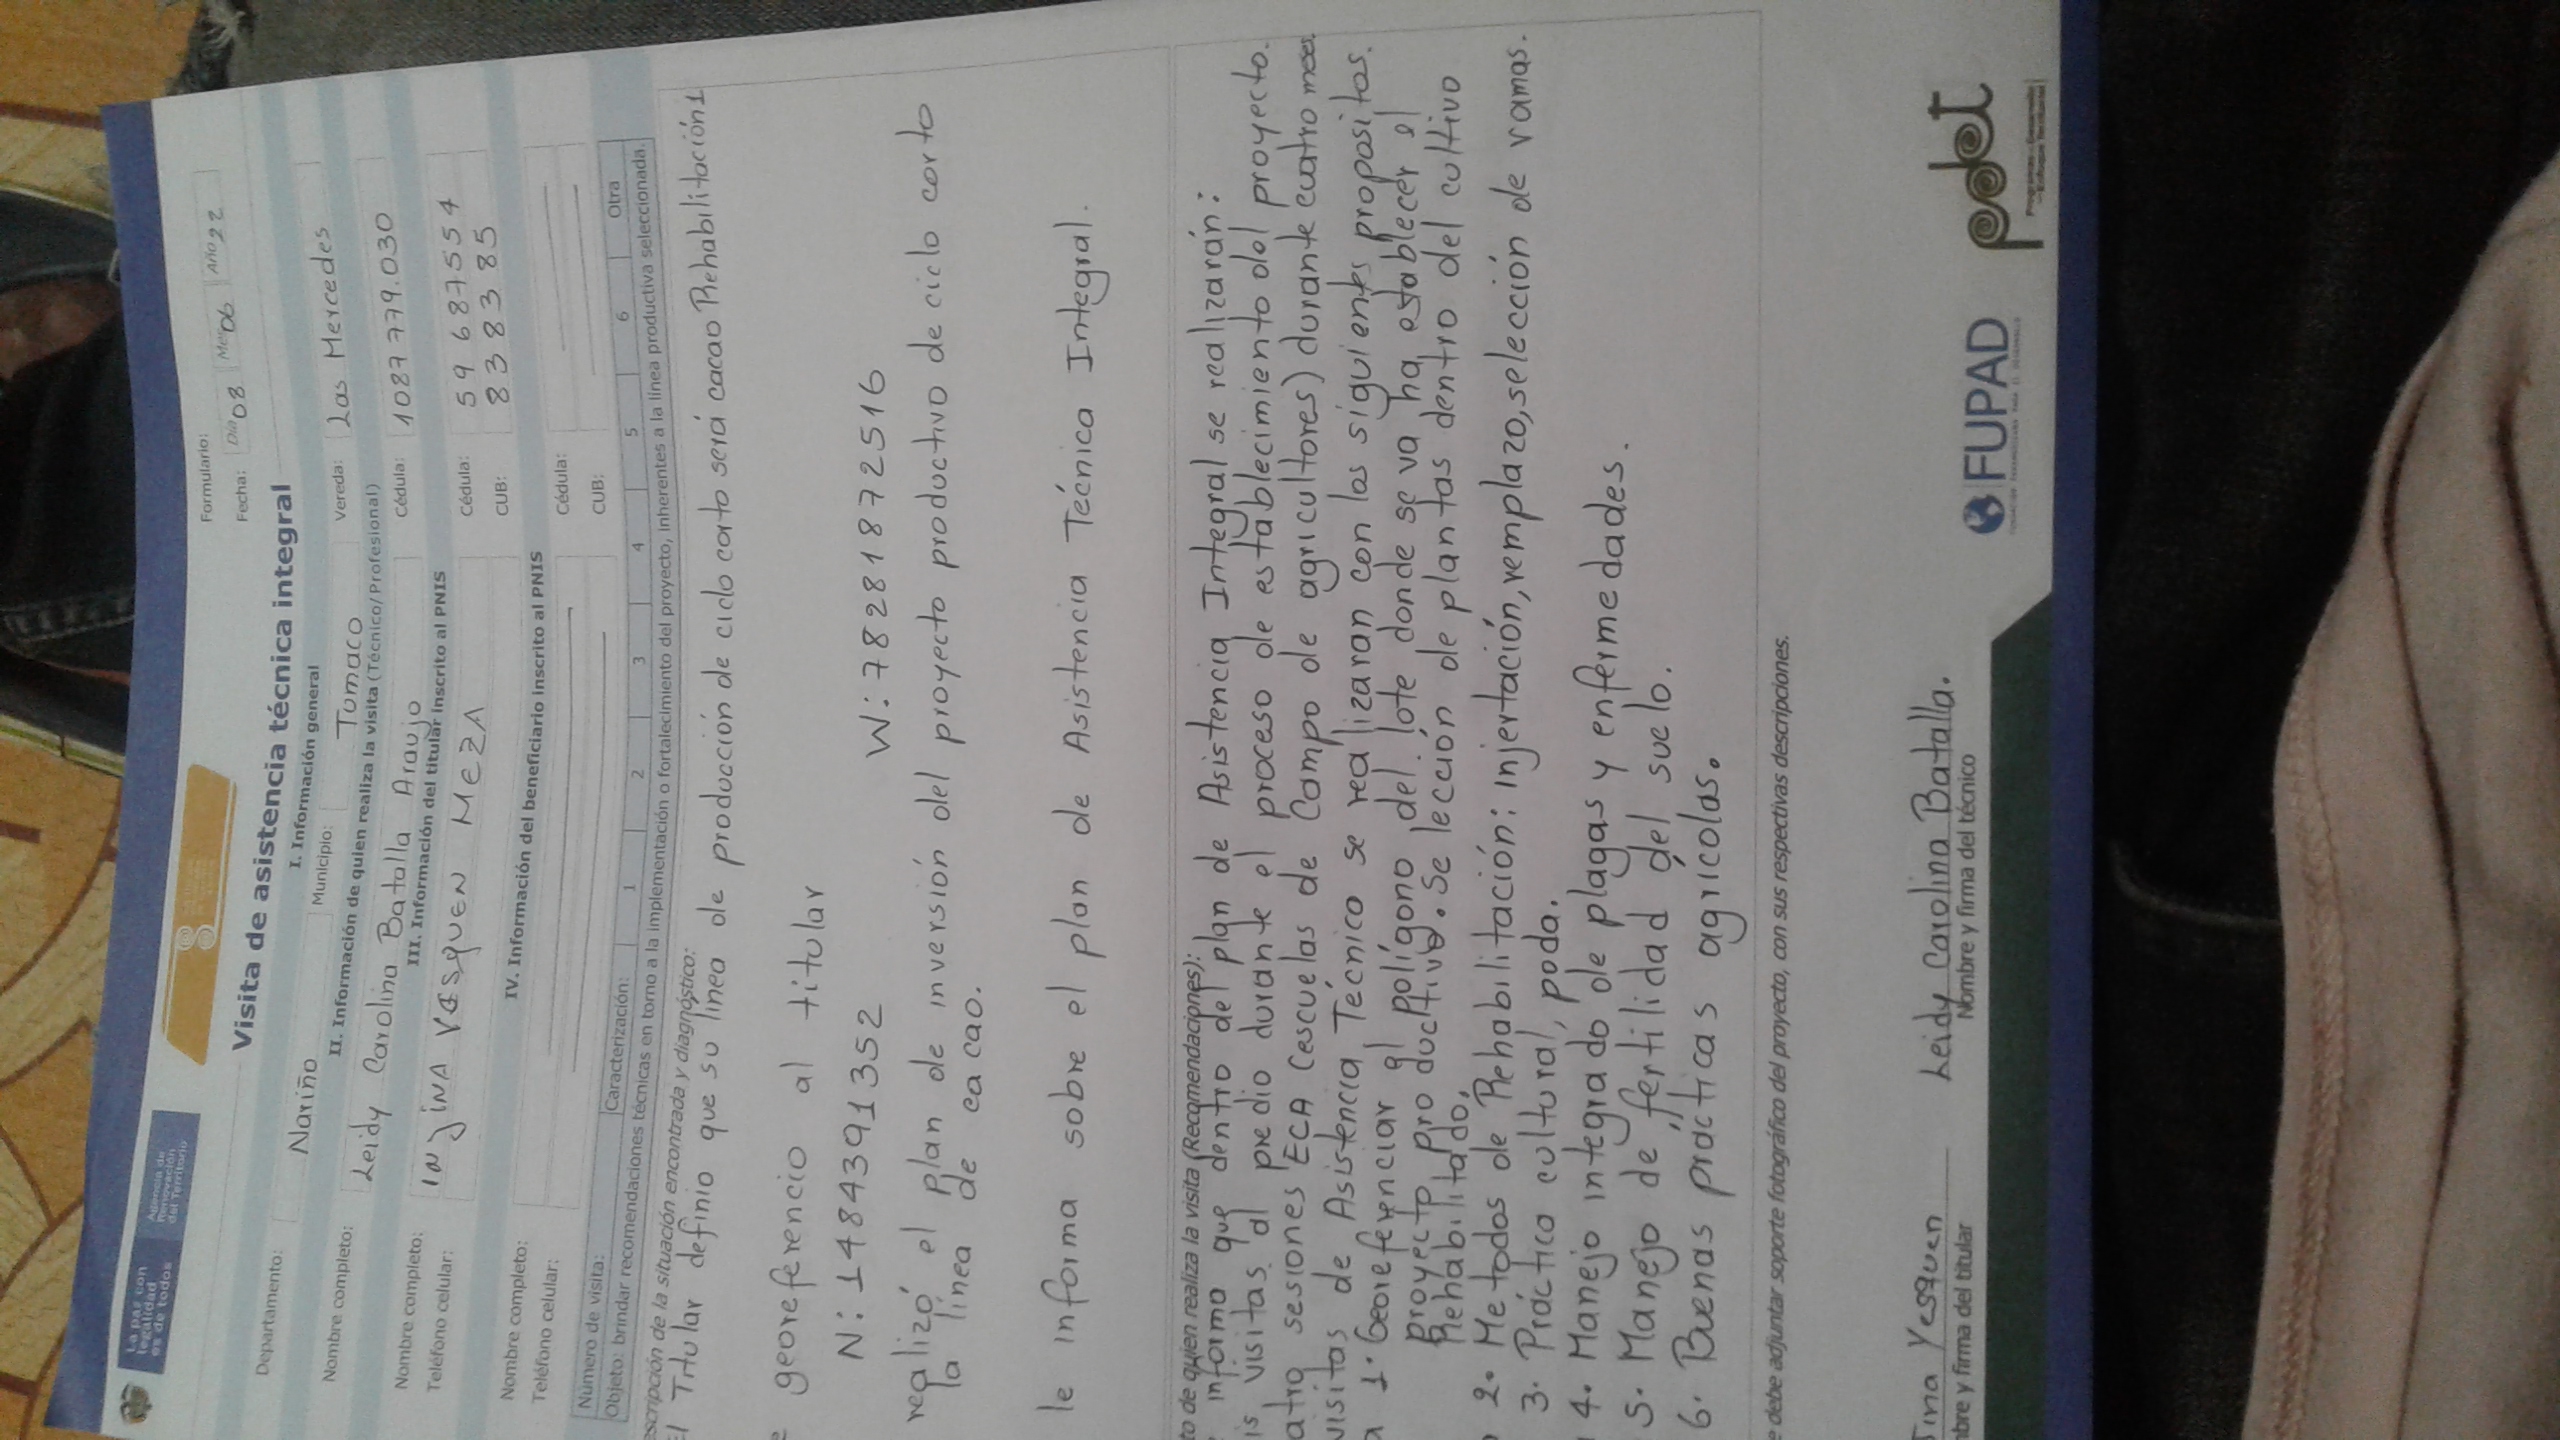 La paz con
legalidad
es de todos
Agencia de
Renovación
del Territorio
Formulario:
Fecha: Día 08 Mes 06 Año 22
Visita de asistencia técnica integral
I. Información general
Departamento: Nariño Municipio: Tumaco Vereda: Las Mercedes
II. Información de quien realiza la visita (Técnico/Profesional)
Nombre completo: Leidy Carolina Batalla Araujo Cédula: 1087779.030
III. Información del titular inscrito al PNIS
Nombre completo: INJINA YESQUEN MEZA Cédula: 59687554
Teléfono celular: CUB: 838385
IV. Información del beneficiario inscrito al PNIS
Nombre completo: Cédula:
Teléfono celular: CUB:
Número de visita: Caracterización: 1 2 3 4 5 6 Otra
Objeto: brindar recomendaciones técnicas en torno a la implementación o fortalecimiento del proyecto, inherentes a la línea productiva seleccionada.
escripción de la situación encontrada y diagnóstico:
El Titular definio que su linea de producción de ciclo corto será cacao Rehabilitación1
georeferencio al titular
N: 1484391352 W: 78281872516
realizó el plan de inversión del proyecto productivo de ciclo corto
la línea de cacao.
le informa sobre el plan de Asistencia Técnica Integral.
to de quien realiza la visita (Recomendaciones):
informa que dentro del plan de Asistencia Integral se realizarán:
is visitas al predio durante el proceso de establecimiento del proyecto.
atro sesiones ECA (escuelas de Campo de agricultores) durante cuatro meses.
visitas de Asistencia Técnico se realizaran con los siguientes propositos.
1. Georeferenciar el polígono del lote donde se va ha establecer el
proyecto productivo. Se lección de plantas dentro del cultivo
Rehabilitado,
2. Metodos de Rehabilitación: injertación, remplazo, selección de ramas.
3. Práctica cultural, poda.
4. Manejo integrado de plagas y enfermedades.
5. Manejo de fertilidad del suelo.
6. Buenas prácticas agrícolas.
e debe adjuntar soporte fotográfico del proyecto, con sus respectivas descripciones.
Jina Yesquen Leidy Carolina Batalla.
mbre y firma del titular Nombre y firma del técnico
FUPAD
pdet